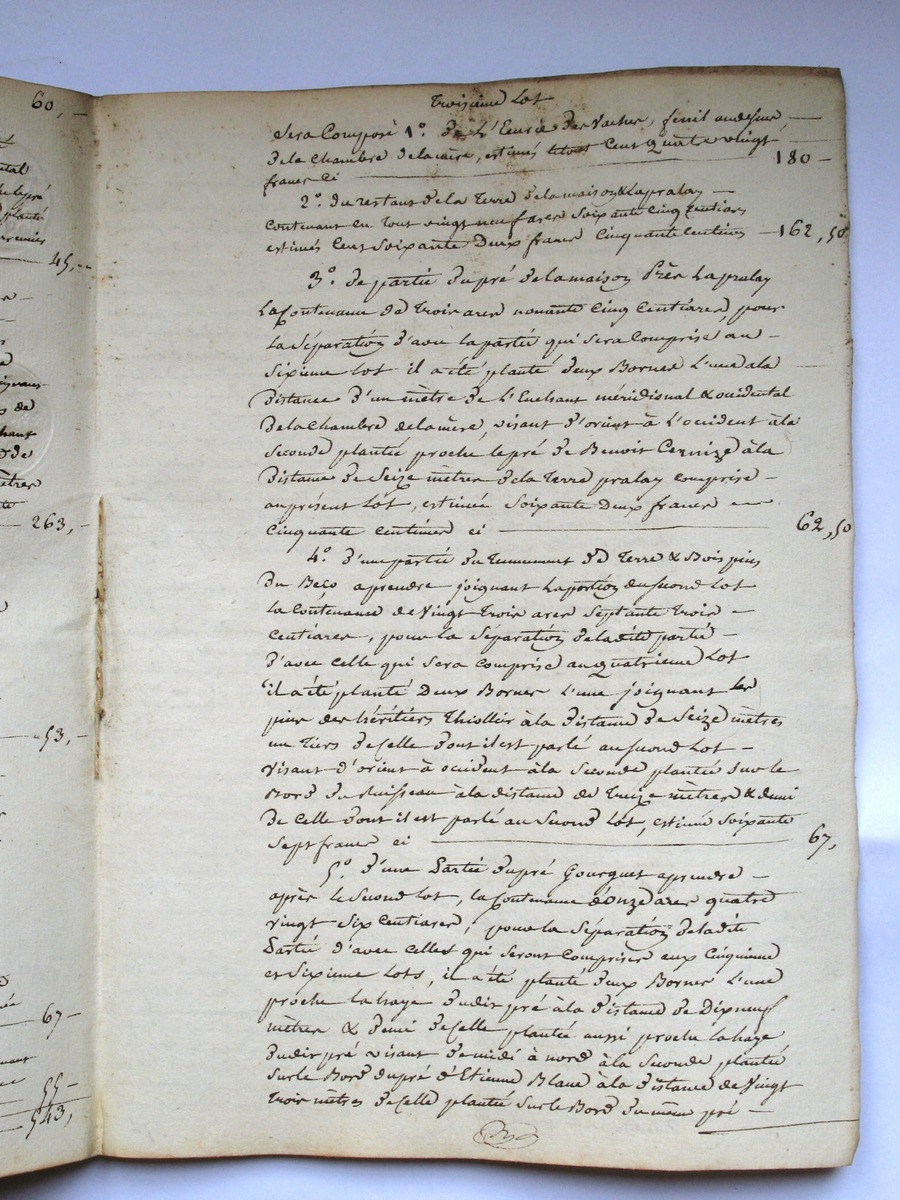 60,-
45,-
263,-
53,-
67-
55-
543,-
Troisième Lot
Sera Composé 1º. de L'Ecurie des Vaches, fenil au dessus,
de la Chambre de la mère, estimés le tout Cent Quatre vingt
francs ci 180-
2º. du restant de la Terre de la maison & Lapralay
Contenant en Tout vingt neuf ares Soixante Cinq Centiares
estimés Cent Soixante Deux francs Cinquante Centimes 162,50
3º. de partie du pré de la maison Près Lapralay
La Contenance de Trois ares nonante Cinq Centiares, pour
La Séparation d'avec la partie qui Sera Comprise au
Sixieme Lot il a été planté deux Bornes L'une a la
Distance d'un mètre de L' méridional & occidental
De la Chambre de la mère, visant d'orient à L'occident à la
Seconde plantée proche le pré de Benoit à la
Distance de Seize mètres de la Terre pralay comprise
au présent Lot, estimée Soixante Deux francs
Cinquante Centimes ci 62,50
4º. d'une partie du Tennement de Terre & Bois pins
Du a prendre joignant La portion du Second Lot
La Contenance de Vingt Trois ares Septante Trois
Centiares, pour la Séparation de la dite partie
d'avec Celle qui Sera Comprise au Quatrieme Lot
il a été planté Deux Bornes L'une joignant les
pins des héritiers Thiollier à la distance de Seize mètres
un Tiers de Celle dont il est parlé au Second Lot
visant d'orient à occident à la Seconde plantée Sur le
Bord du Ruisseau à la distance de Treize mètres & demi
De Celle dont il est parlé au Second Lot, estimée Soixante
Sept francs ci 67,
5º. d'une Partie du pré Gourguet a prendre
après le Second Lot, la Contenance d'onze ares quatre
vingt Six Centiares, pour la Séparation de la dite
Partie d'avec Celles qui Seront Comprises aux Cinquieme
et Sixieme Lots, il a été planté deux Bornes L'une
proche la haye dudit pré à la distance de Dix neuf
mètres & demi de Celle plantée aussi proche la haye
dudit pré visant de midi à nord à la Seconde plantée
Sur le Bord du pré d'Etienne Blanc à la distance de Vingt
Trois mètres de Celle plantée Sur le Bord du même pré